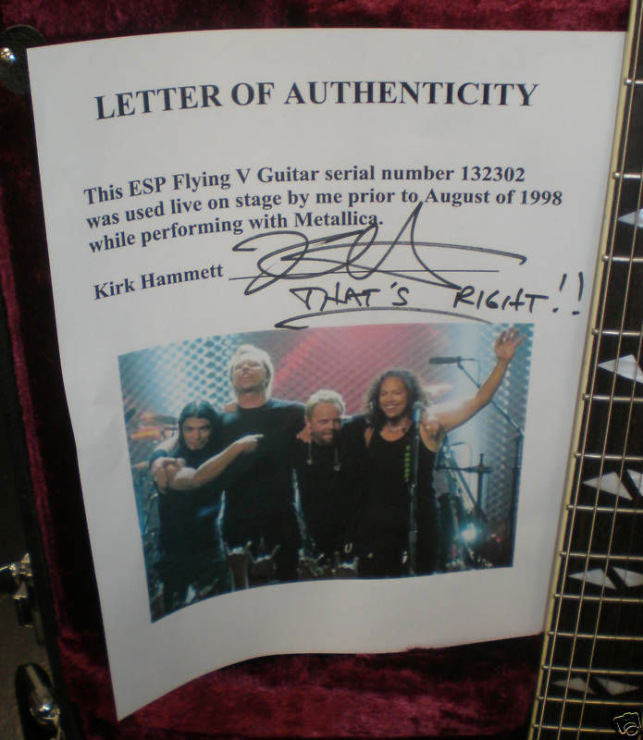 LETTER OF AUTHENTICITY
This ESP Flying V Guitar serial number 132302
was used live on stage by me prior to August of 1998
while performing with Metallica.
Kirk Hammett
THAT'S RIGHT!!